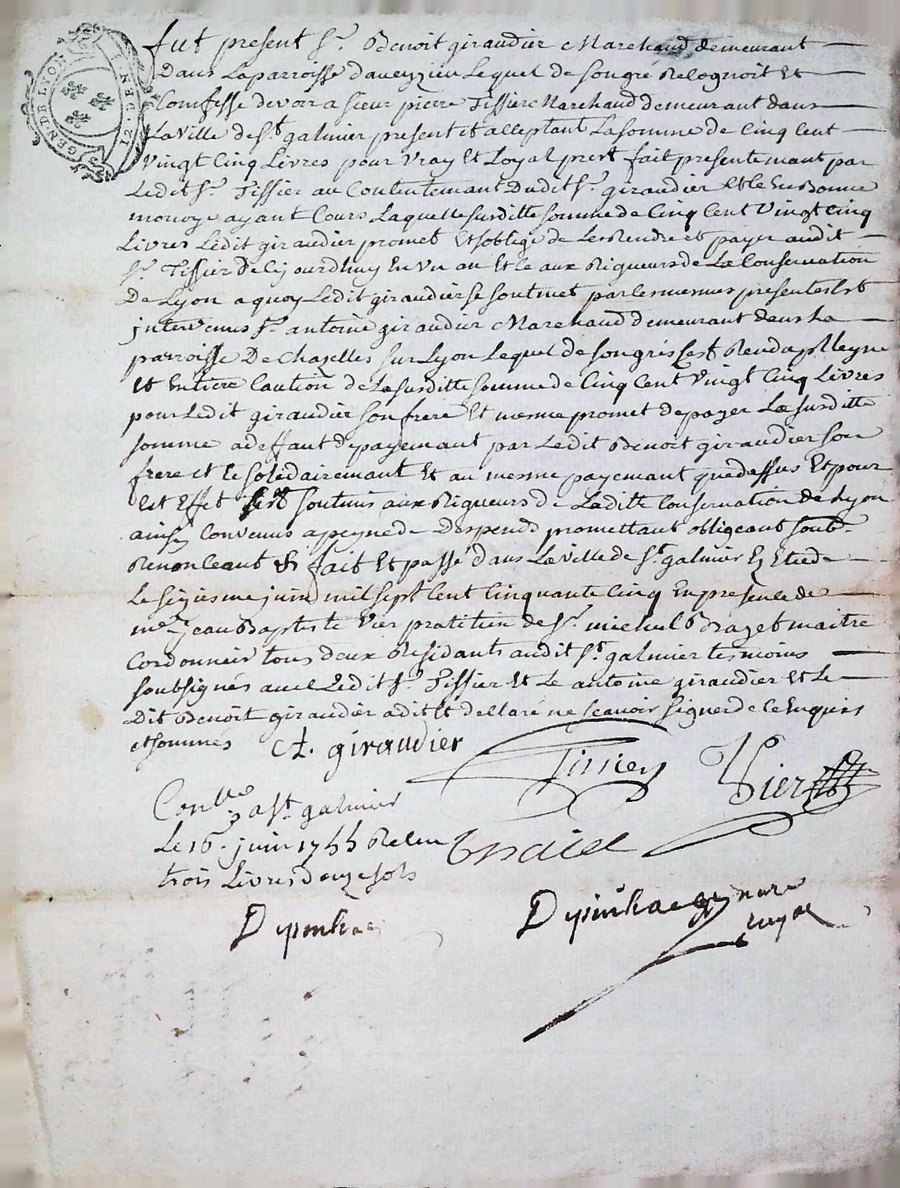 GEN. DE LYON
12. DEN.
fut present Sr. Benoit giraudier Marchand demeurant
Dans La parroisse daveizzieu Lequel de son gré Recognoit Et
Comfesse devoir a sieur pierre Tissier Marchand demeurant dans
La Ville de St galmier present et acceptant La somme de Cinq Cent
Vingt Cinq Livres pour Vray Et Loyal prest fait presentemant par
Ledit Sr. Tissier au Contentemant Dudit Sr. giraudier Et le En Bonne
monoye ayant Cours Laquelle susditte somme de Cinq Cent Vingt Cinq
Livres Ledit giraudier promet Et soblige de Les Rendre et payer audit
Sr. Tissier de Cejourdhuy En Un an Et Ce aux Rigueurs de La Conservation
De Lyon a quoy Ledit giraudier se soutmet par les mesmes presentes Est
intervenus Sr. antoine giraudier Marchand demeurant dans La
parroisse De Chazelles sur Lyon Lequel de son gré sest Rendu plleyne
Et Entiere Caution de La susditte somme de Cinq Cent Vingt Cinq Livres
pour Ledit giraudier son frere Et mesme promet de payer La susditte
somme a deffaut de payemant par Ledit Benoit giraudier son
frere et Ce solidairemant Et au mesme payemant que dessus Et pour
Cet Effet sest soutmis aux Rigueurs de Laditte Conservation de Lyon
ainsy Convenus a peyne de Despends promettant obligeant soub.
Renonceant & fait Et passé dans La Ville de St. galmier Etude
Le seiziesme juin mil sept Cent Cinquante Cinq En presence de
me. jean Baptiste Vier pratitien de Sr. michel Brazet maitre
Cordonnier tous deux Residants audit St galmier tesmoins
soubsignés avec Ledit Sr. Tissier Et Le antoine giraudier Et Le
Dit Benoit giraudier a dit Et declaré ne scavoir signer de Ce Enquis
et sommés
A. giraudier
Tissier
Vier
Conllé a St. galmier
Le 16. juin 1755 Receu
trois Livres douze sols
Depinhac
Depinhac
royal